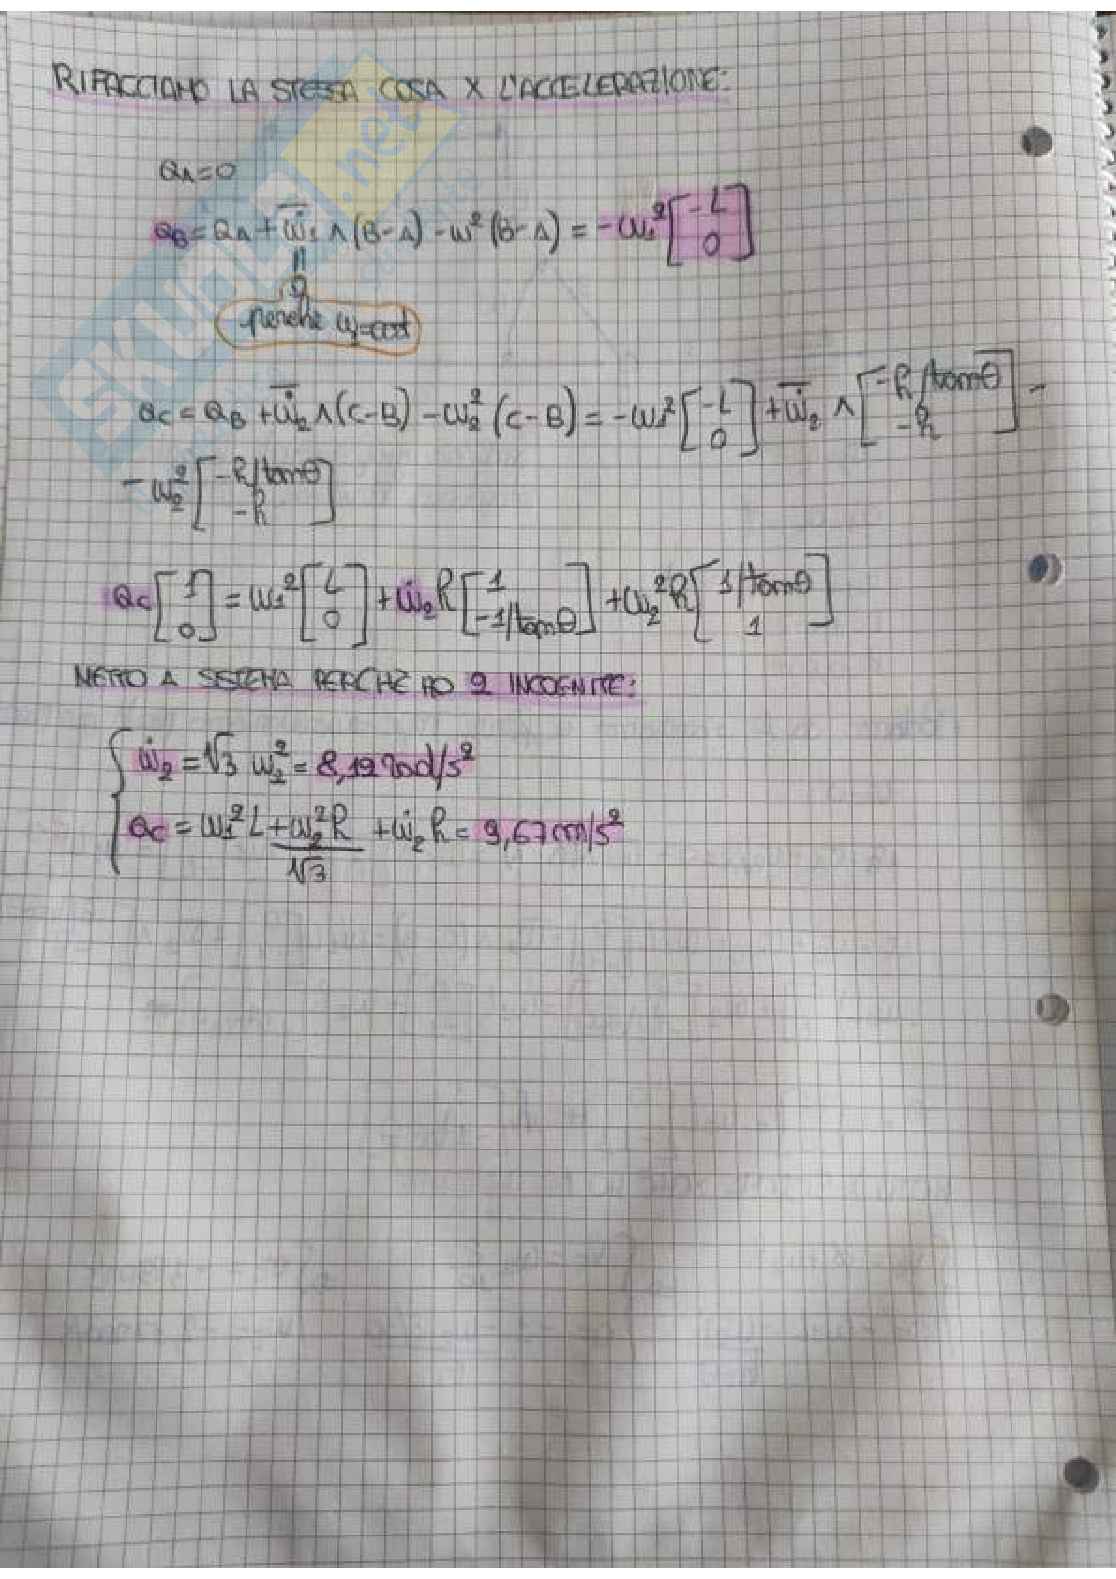 RIFACCIAMO LA STESSA COSA X L'ACCELERAZIONE:
SKUOLA.net
a_A = 0
a_B = a_A + ω̇₁ ∧ (B-A) - ω² (B-A) = -ω₁² [-L 0]
=
0
perché ω₁=cost
a_C = a_B + ω̇₂ ∧ (C-B) - ω₂² (C-B) = -ω₁² [-L 0] + ω̇₂ ∧ [-R/tanθ -R] -
- ω₂² [-R/tanθ -R]
a_C [1 0] = ω₁² [L 0] + ω̇₂ R [1 -1/tanθ] + ω₂² R [1/tanθ 1]
METTO A SISTEMA PERCHÉ HO 2 INCOGNITE:
ω̇₂ = √3 ω₂² = 8,19 rad/s²
a_C = ω₁² L + ω₂² R/√3 + ω̇₂ R = 9,67 cm/s²